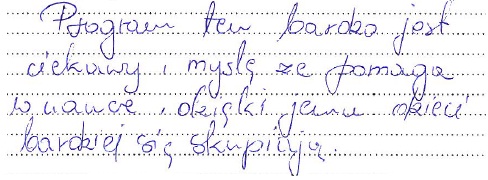 Program ten bardzo jest
ciekawy i myślę ze pomaga
w nauce, dzięki jemu dzieci
bardziej się skupiają.